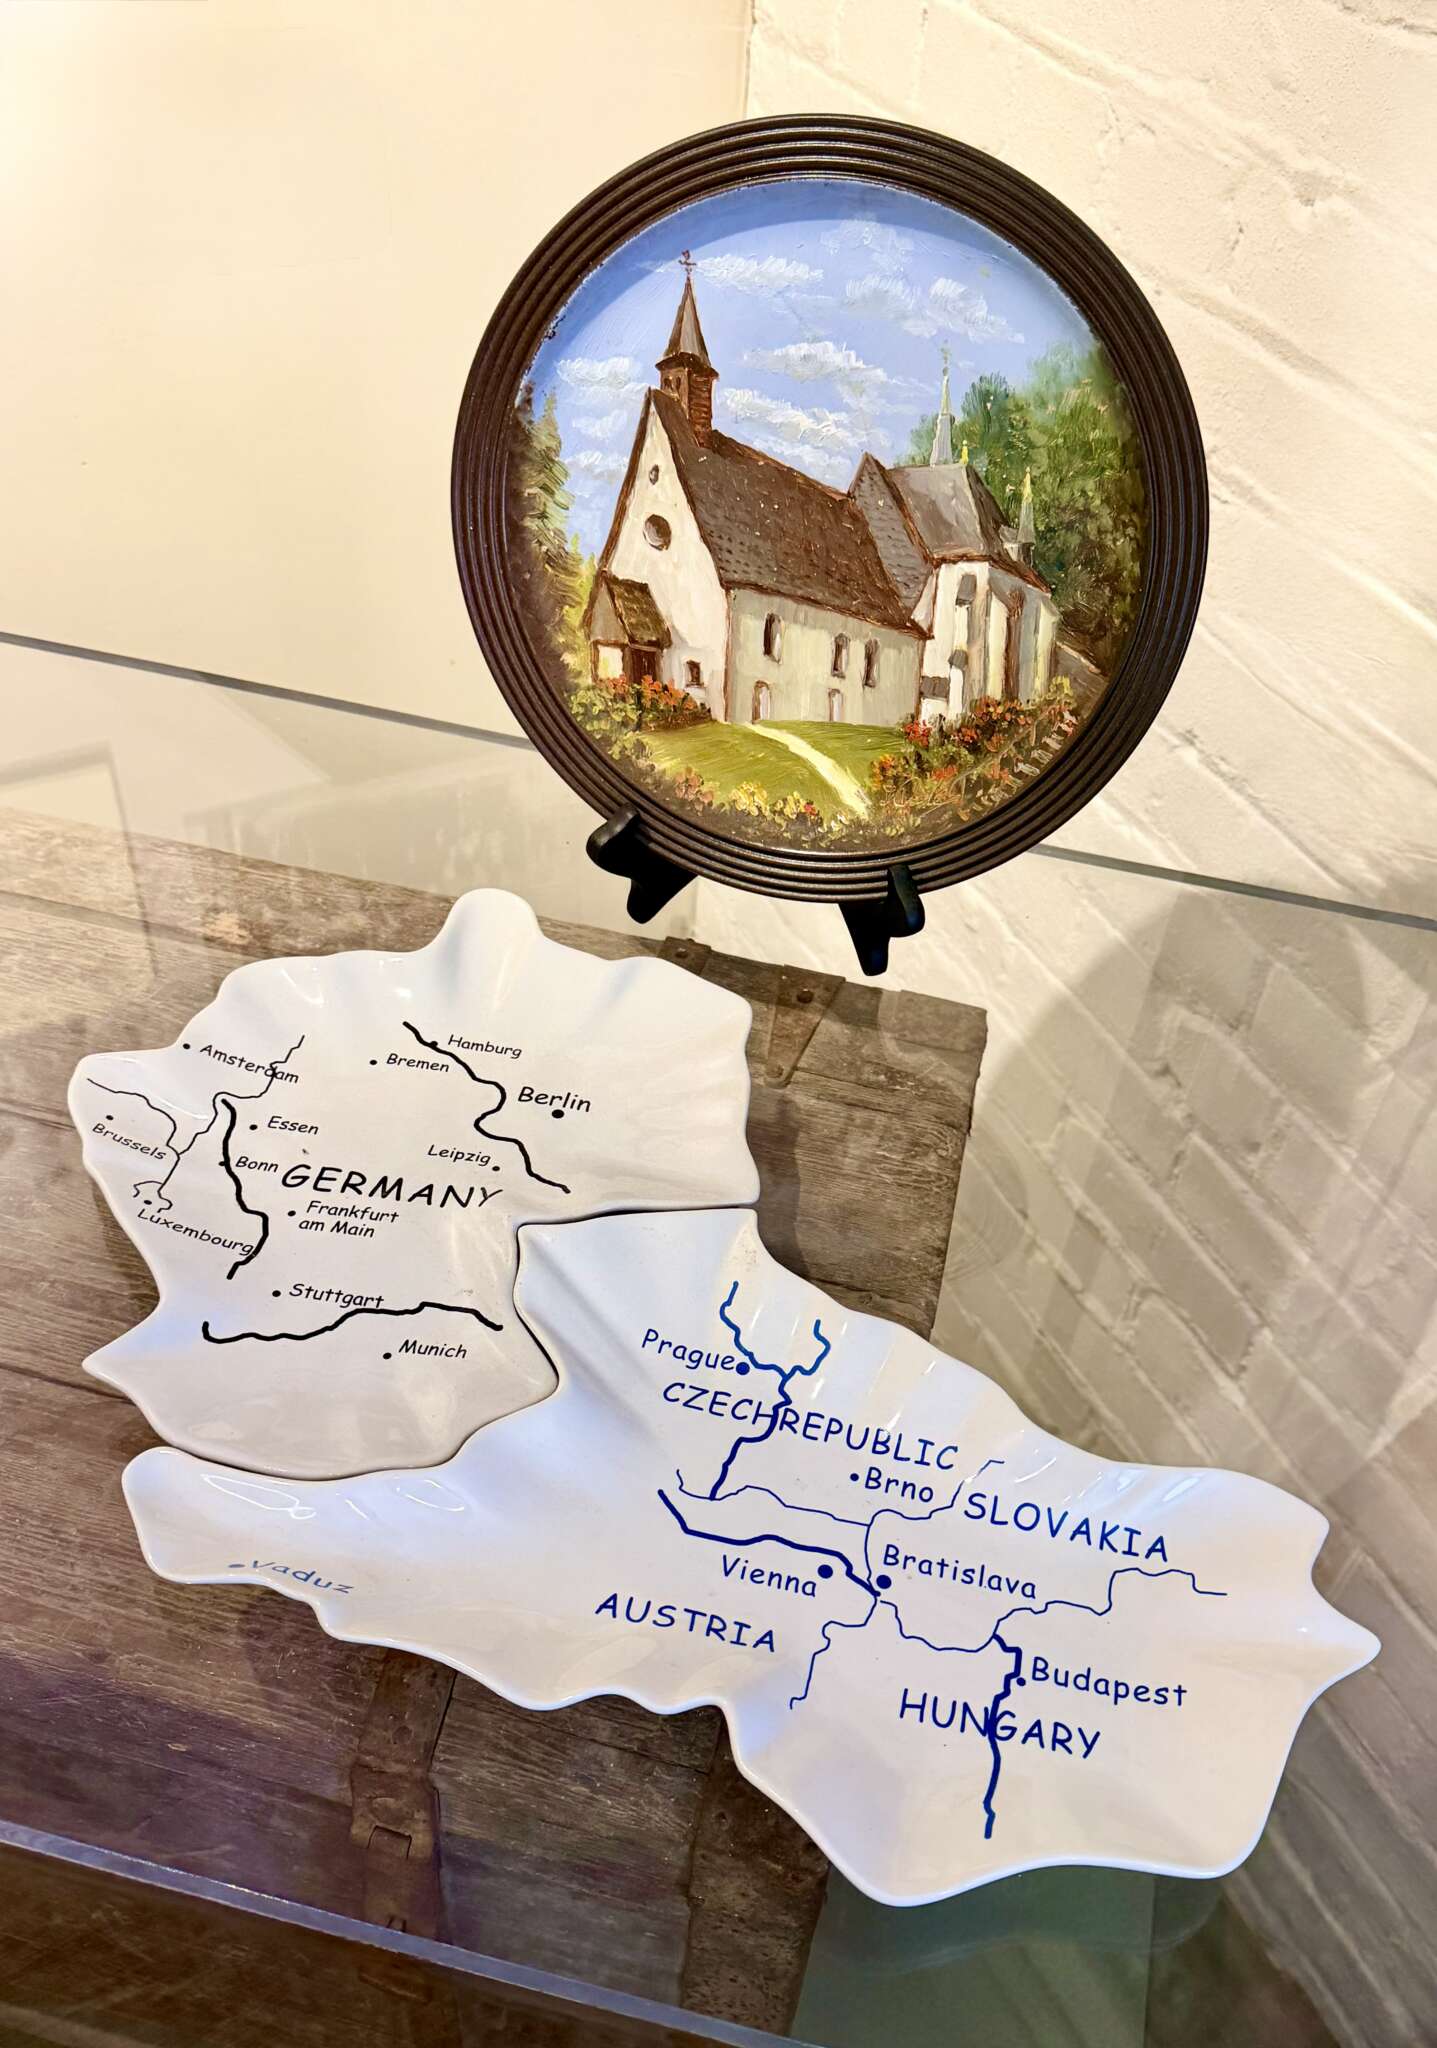 Hamburg
Amsterdam
Bremen
Berlin
Brussels
Essen
Leipzig
Bonn
GERMANY
Luxembourg
Frankfurt
am Main
Stuttgart
Munich
Prague
CZECHREPUBLIC
Brno
SLOVAKIA
Vaduz
Vienna
Bratislava
AUSTRIA
Budapest
HUNGARY